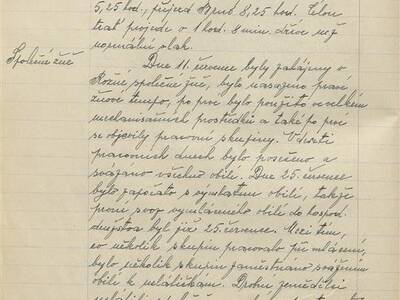 5,25 hod., příjezd Brno 8,25 hod. Celou
trať projede o 1 hod. 8 min. dříve než
normální vlak.
Společné žně
Dne 11. července byly zahájeny v
Rožné společné žně, bylo nasazeno pravé
žňové tempo, po prvé bylo použito ve velkém
mechanisačních prostředků a také po prvé
se objevily pracovní skupiny. V deseti
pracovních dnech bylo posečeno a
svázáno všechno obilí. Dne 25. července
bylo započato s výmlatem obilí, takže
první svoz vymláceného obilí do hospod.
družstva byl již 25. července. Mezi tím,
co několik skupin pracovalo při mlácení,
bylo několik skupin zaměstnáno svážením
obilí k mlátičkám. Drobní zemědělci